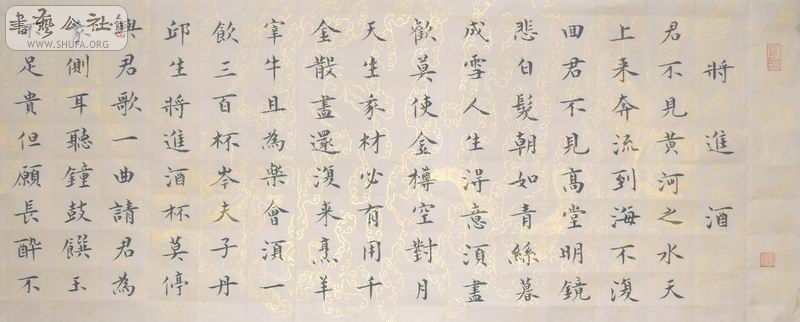 將進酒
君不見黃河之水天
上来奔流到海不復
回君不見高堂明鏡
悲白髮朝如青絲暮
成雪人生得意須盡
歡莫使金樽空對月
天生我材必有用千
金散盡還復来烹羊
宰牛且為樂會須一
飲三百杯岑夫子丹
邱生將進酒杯莫停
與君歌一曲請君為
我側耳聽鐘鼓饌玉
足貴但願長酔不
書藝公社
WWW.SHUFA.ORG